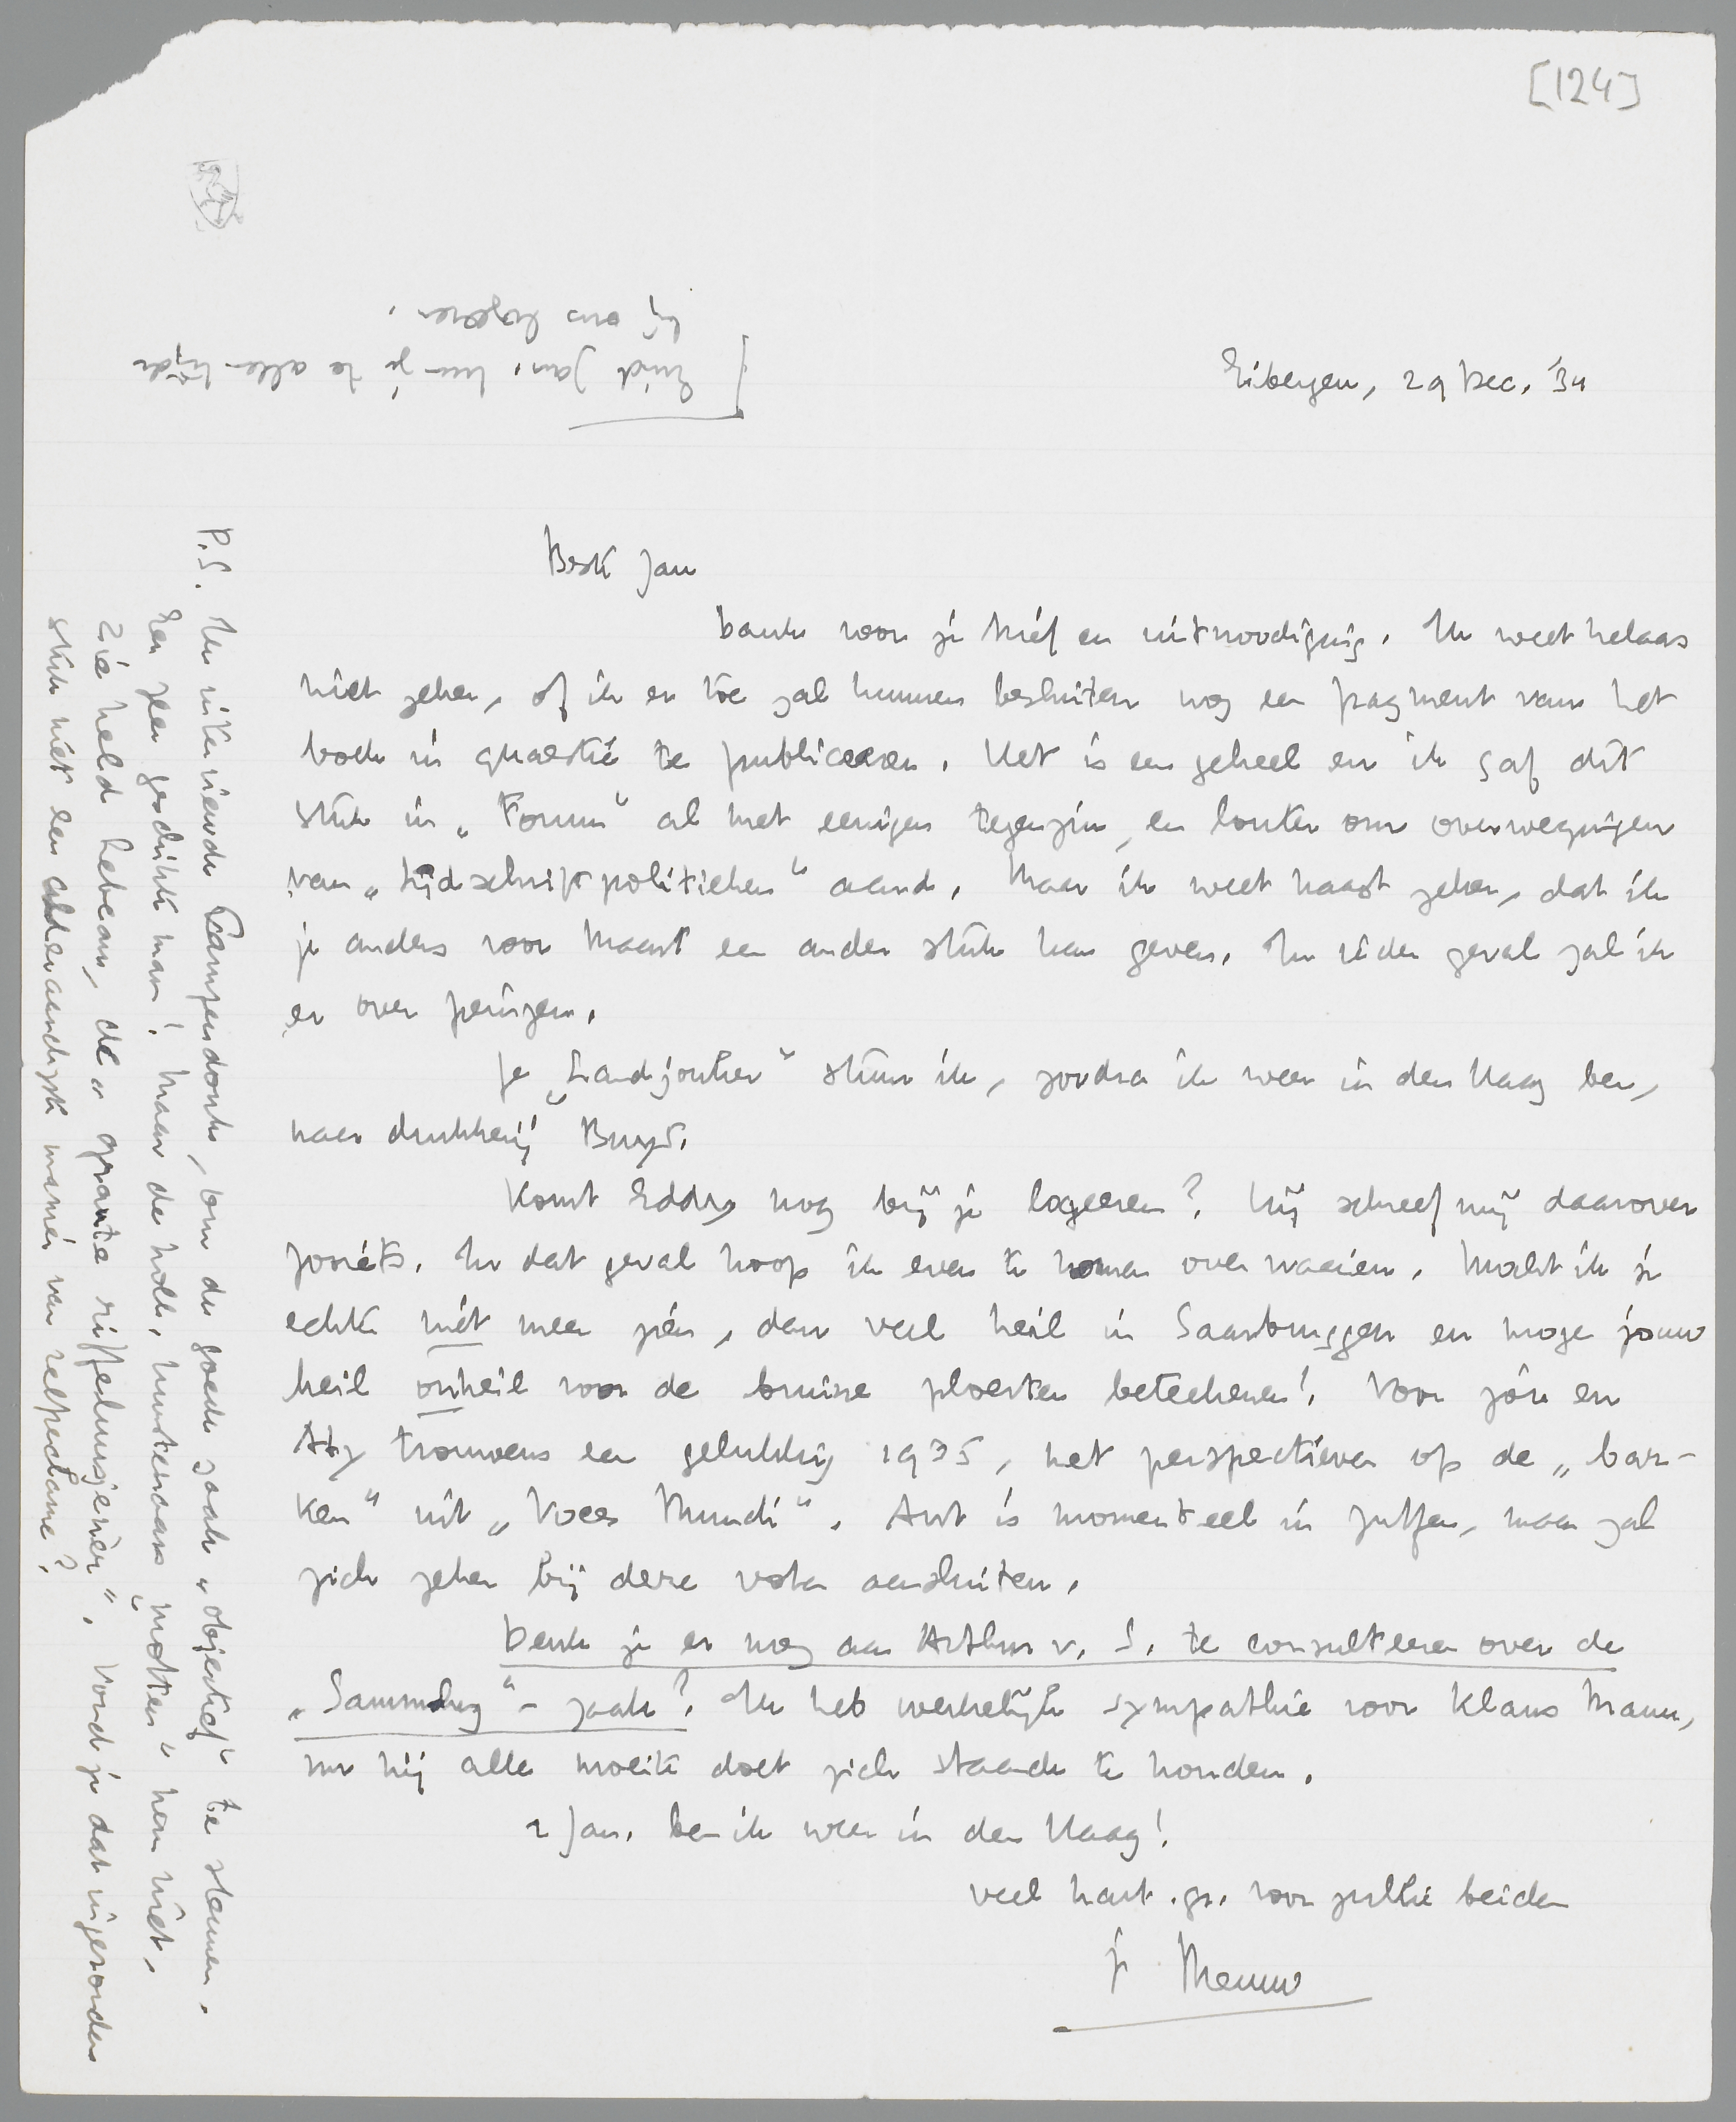 [124]
Eibergen, 29 Dec. '34
Beste Jan
Dank voor je brief en uitnoodiging. Ik weet helaas
niet zeker, of ik er toe zal kunnen besluiten nog een fragment van het
boek in quaestie te publiceeren. Het is een geheel en ik gaf dit
stuk in „Forum" al met eenigen tegenzin, en louter om overwegingen
van „tijdschriftpolitieken" aard. Maar ik weet haast zeker, dat ik
je anders voor Maart een ander stuk kan geven. In ieder geval zal ik
er over peinzen.
Je „Landjonker" stuur ik, zoodra ik weer in den Haag ben,
naar drukkerij Boosten
Komt Eddy nog bij je logeeren? Hij schreef mij daarover
zooiets. In dat geval hoop ik even te komen overwaaien. Mocht ik je
echter niet meer zien, dan veel heil in Saarbruggen en moge jouw
heil onheil voor de bruine ploerten beteekenen! Voor jou en
Aty trouwens een gelukkig 1935, met perspectieven op de „bar-
ken" uit „Voces Mundi". Ant is momenteel in Zutfen, maar zal
zich zeker bij deze vota aansluiten.
Denk je er nog aan Arthur v. S. te consulteeren over de
„Sammlung"-zaak? Ik heb werkelijk sympathie voor Klaus Mann,
nu hij alle moeite doet zich staande te houden.
2 Jan. ben ik weer in den Haag!
veel hart. gr. voor jullie beiden
je Menno
P.S. Ik interviewde Campendonk, om de goede zaak „objectief" te steunen.
Een zeer geschikte man! Maar de holl. kunstenaars „motten" hem niet,
zie held Lebeau, de „granite riffelmusjenier". Vond je dat ingezonden
stuk niet een alderaardigst manier van relpectame?
[Eind Jan. kun je te allen tijde
bij ons logeeren.